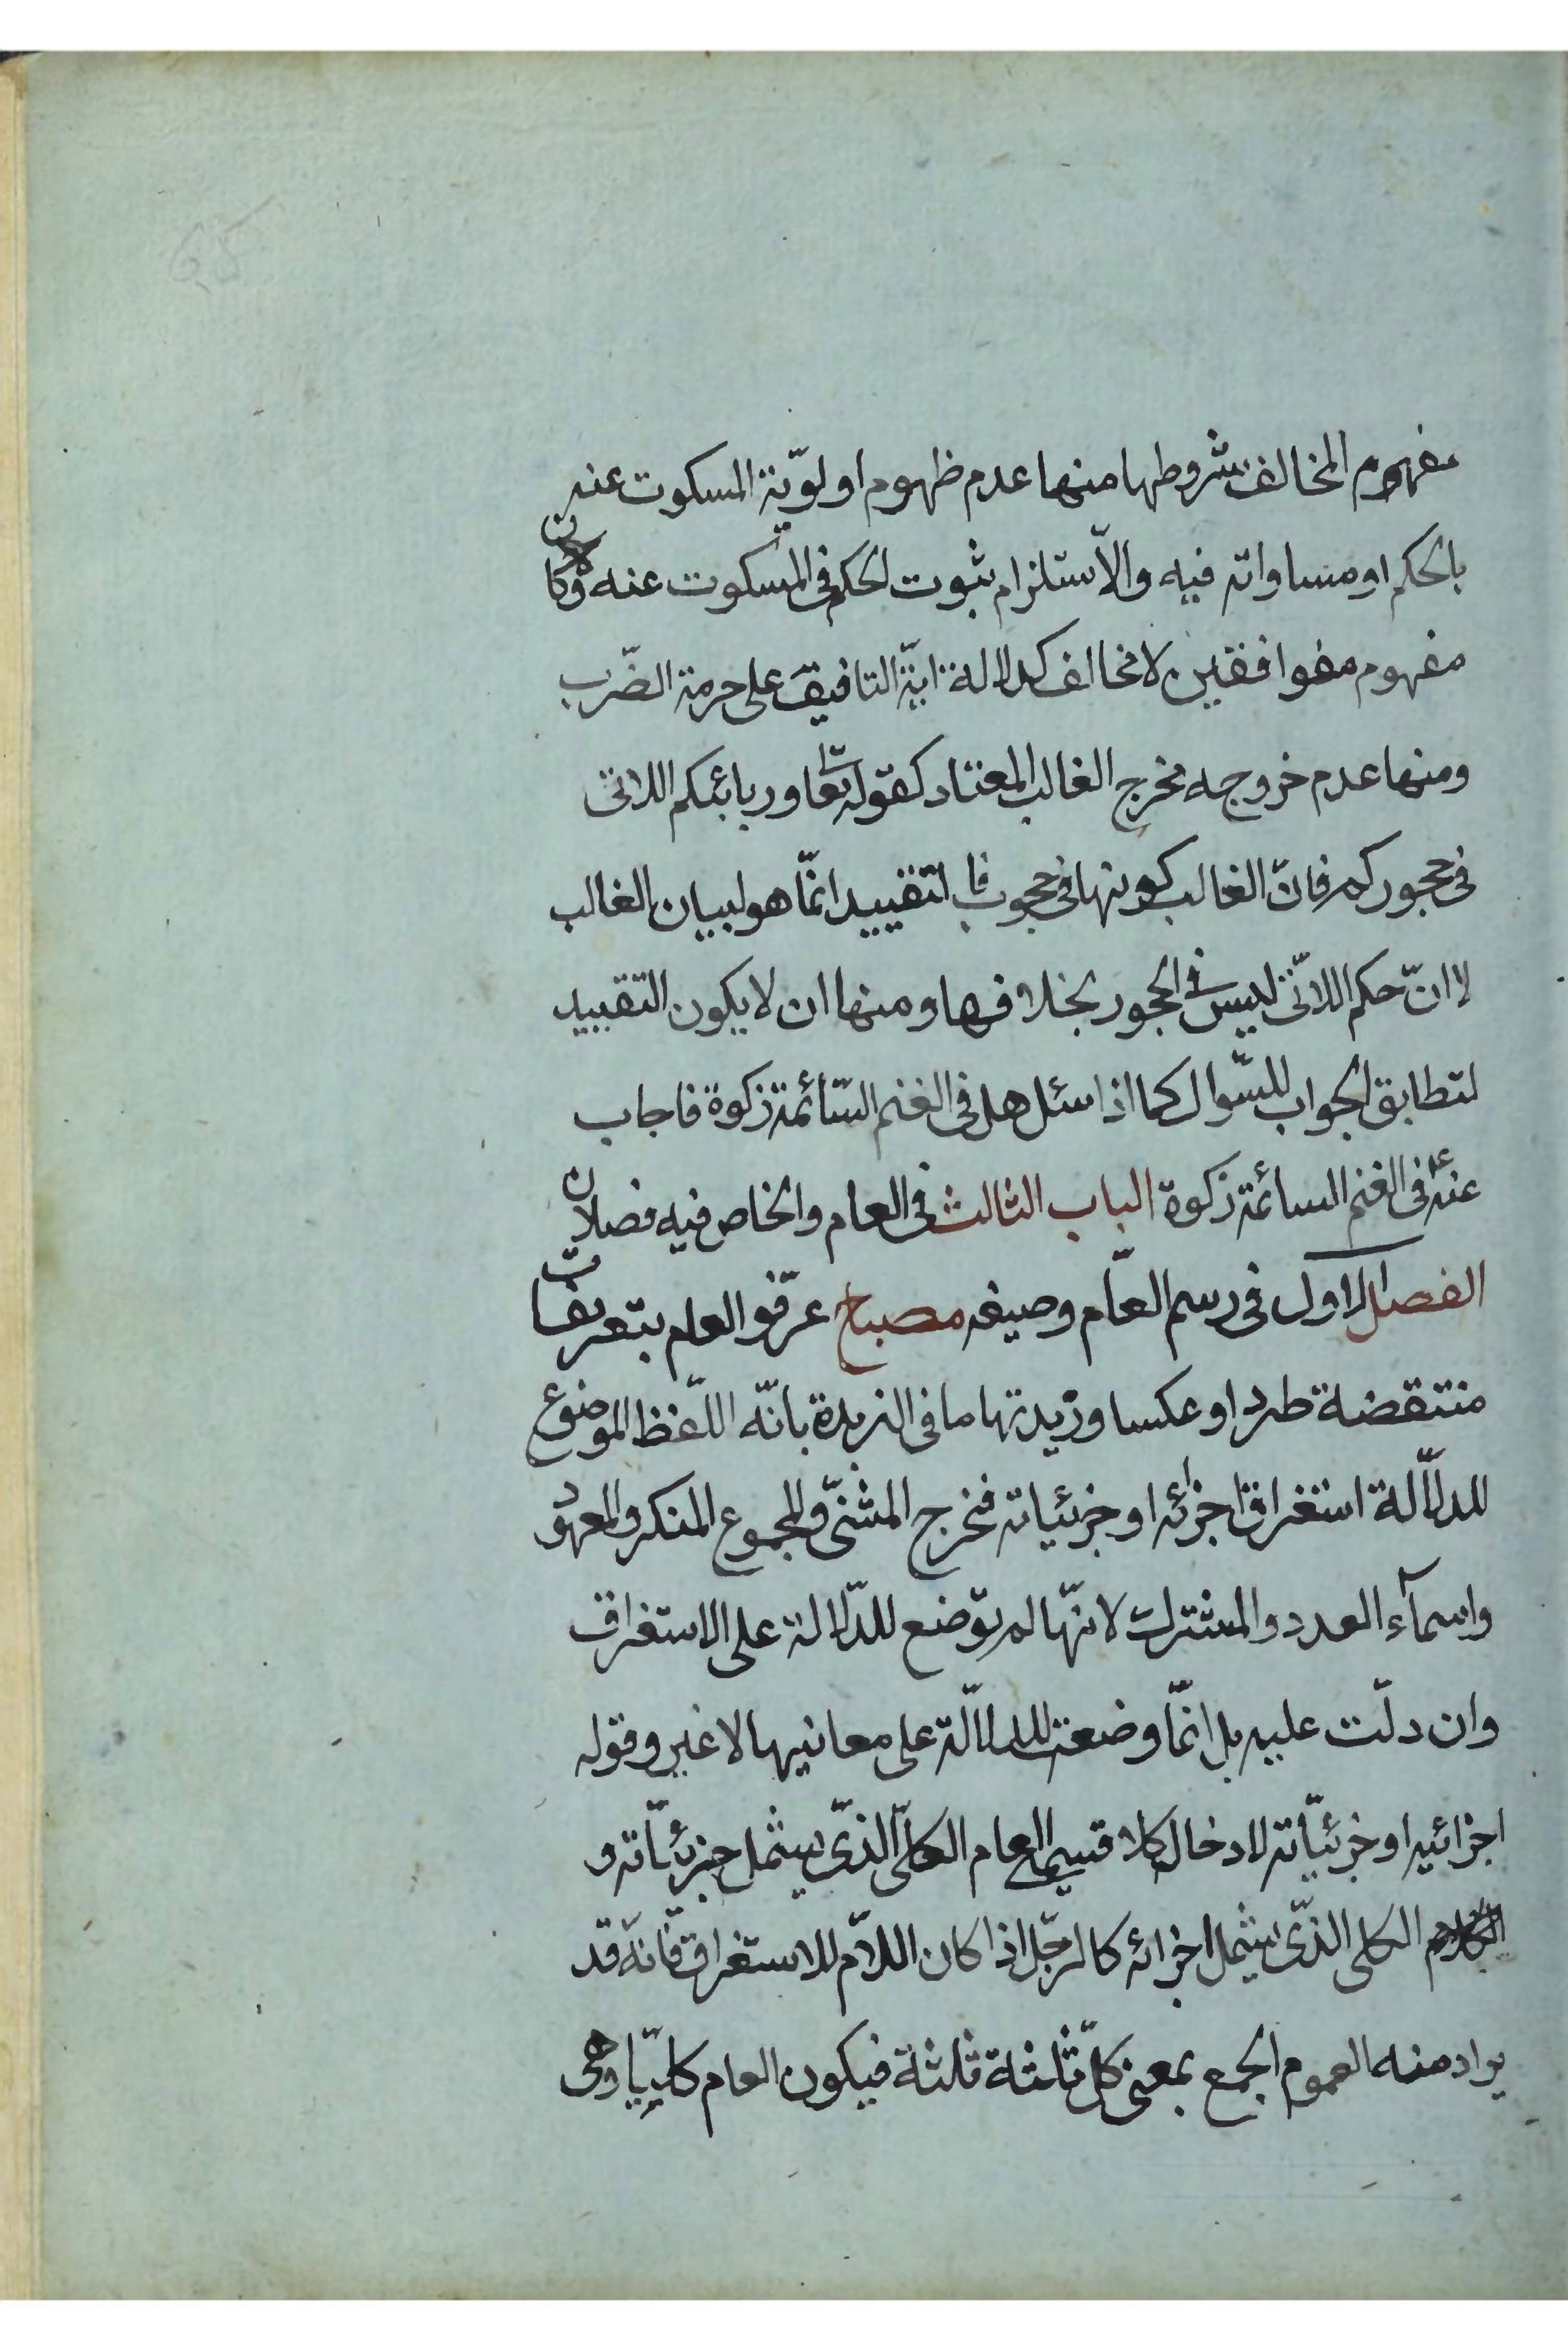 مفهوم المخالف شروطها منها عدم ظهوم اولوّية المسكوت عنه
بالحكم او مساواته فيه والاّ ستلزام ثبوت الحكم فى المسكوت عنه وكان
مفهوم مفوافقين لا مخالف كدلالة اٰيّة التافيق على حرمة الضّرب
ومنها عدم خروجه مخرج الغالب المعتاد كقوله تعا وربائبكم اللاتى
فى حجوركم فانّ الغالب كونها فى حجوب فا لتقييد انّما هو لبيان الغالب
لا انّ حكم اللاتى ليس فى الحجور بخلا فها ومنها ان لا يكون التقييد
لتطابق الجواب للسّوال كما اذا سئل هل فى الغنم السّائمة زكوة فاجاب
عنه فى الغنم السائمة زكوة الباب الثالث فى العام والخاص فيه فصلان
الفصل الاول فى رسم العاّم وصيغه مصباح عرّفو العام بتعريفات
منتقضة طردا وعكسا وزيدتها ما فى الزبدة بانّه اللّفظ الموضوع
للدلاّلة استغراق اجزائه او جزئياته فخرج المثنّى والمجموع المنكر والمعهود
واسمآء العدد والمشترك لانّها لم توضع للدّلالة على الاستغراق
وان دلّت عليه بل انّما وضعت للدلالّة على معانيها لا غير وقوله
اجزائيه او جزئيّاته لادخال كلا قسيمى العام الكلىّ الذّى يشمل جزئيّاته و
الكلى الذّى يشمل اجزائه كالرجّل اذا كان اللاّم للاستغراق فانّه قد
يراد منه العموم الجمع بمعنى كلّ ثلثة ثلثة فيكون العام كليّا وهى